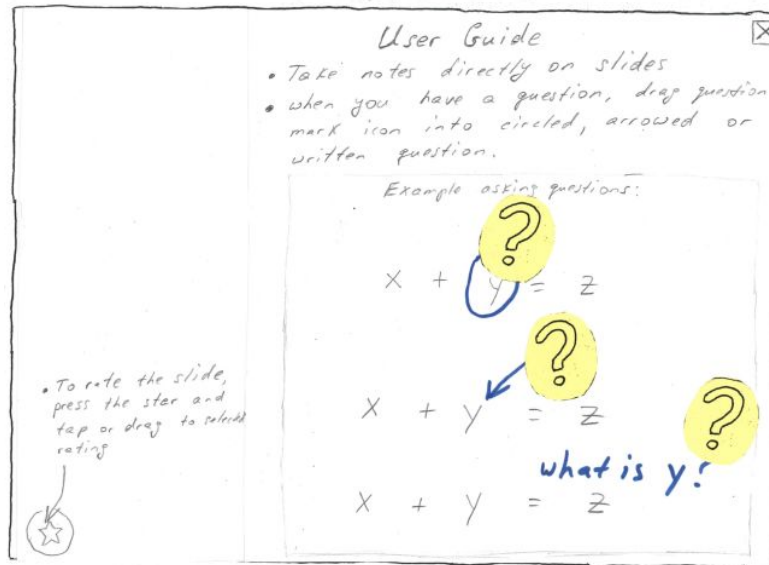 User Guide
• Take notes directly on slides
• when you have a question, drag question
mark icon into circled, arrowed or
written question.
Example asking questions:
?
x + y = z
?
x + y = z
?
what is y?
x + y = z
• To rate the slide,
press the star and
tap or drag to selected
rating